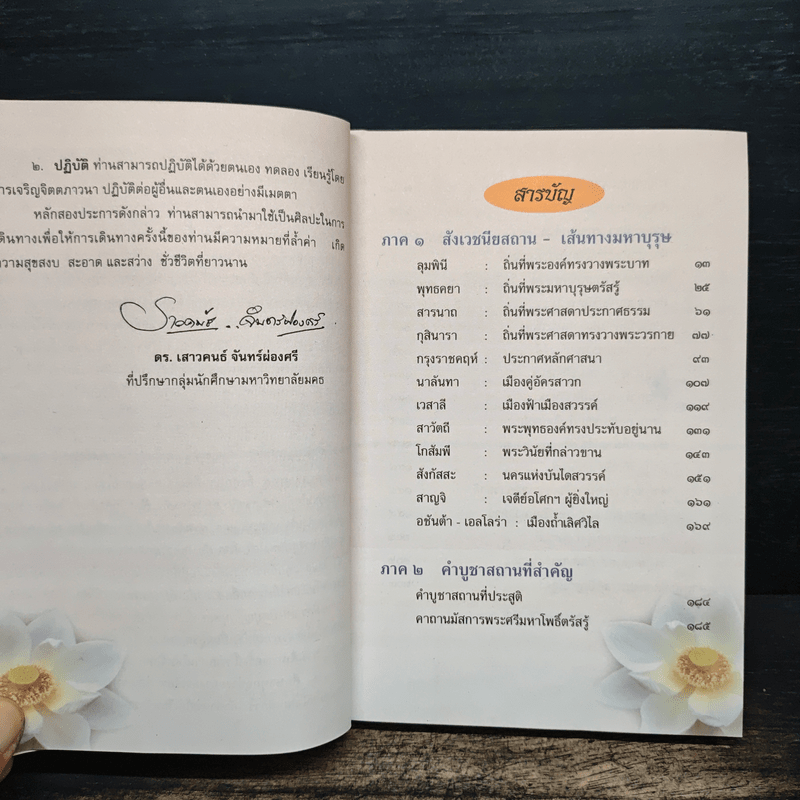 ๒. ปฏิบัติ ท่านสามารถปฏิบัติได้ด้วยตนเอง ทดลอง เรียนรู้โดย
การเจริญจิตตภาวนา ปฏิบัติต่อผู้อื่นและตนเองอย่างมีเมตตา
หลักสองประการดังกล่าว ท่านสามารถนำมาใช้เป็นศิลปะในการ
เดินทางเพื่อให้การเดินทางครั้งนี้ของท่านมีความหมายที่ล้ำค่า เกิด
ความสุขสงบ สะอาด และสว่าง ชั่วชีวิตที่ยาวนาน
ดร. เสาวคนธ์ จันทร์ผ่องศรี
ที่ปรึกษากลุ่มนักศึกษามหาวิทยาลัยมคธ
สารบัญ
ภาค ๑ สังเวชนียสถาน - เส้นทางมหาบุรุษ
ลุมพินี : ถิ่นที่พระองค์ทรงวางพระบาท ๑๓
พุทธคยา : ถิ่นที่พระมหาบุรุษตรัสรู้ ๒๕
สารนาถ : ถิ่นที่พระศาสดาประกาศธรรม ๖๑
กุสินารา : ถิ่นที่พระศาสดาทรงวางพระวรกาย ๗๗
กรุงราชคฤห์ : ประกาศหลักศาสนา ๙๓
นาลันทา : เมืองคู่อัครสาวก ๑๐๗
เวสาลี : เมืองฟ้าเมืองสวรรค์ ๑๑๙
สาวัตถี : พระพุทธองค์ทรงประทับอยู่นาน ๑๓๑
โกสัมพี : พระวินัยที่กล่าวขาน ๑๔๓
สังกัสสะ : นครแห่งบันไดสวรรค์ ๑๕๑
สาญจิ : เจดีย์อโศกฯ ผู้ยิ่งใหญ่ ๑๖๑
อชันต้า - เอลโลร่า : เมืองถ้ำเลิศวิไล ๑๖๙
ภาค ๒ คำบูชาสถานที่สำคัญ
คำบูชาสถานที่ประสูติ ๑๘๔
คาถานมัสการพระศรีมหาโพธิ์ตรัสรู้ ๑๘๕